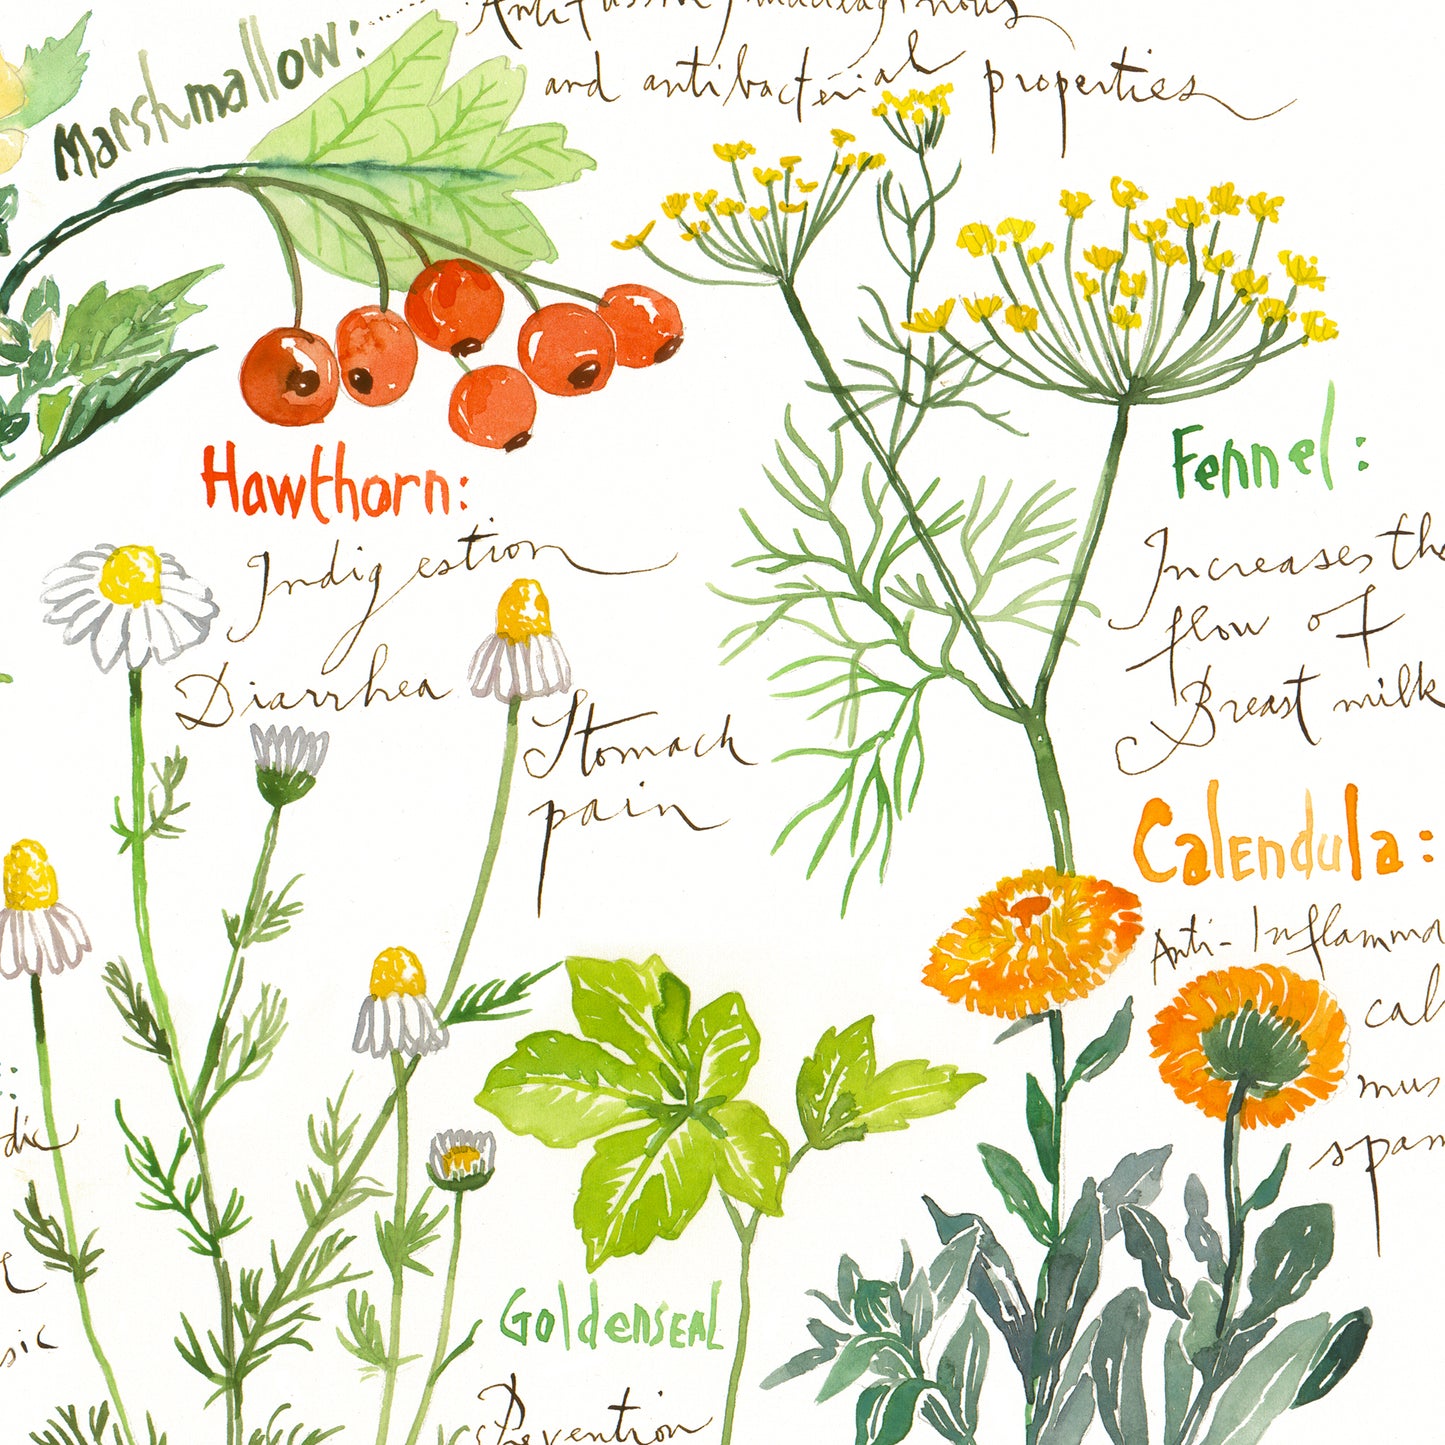 Marshmallow:
Antitussive, mucilaginous
and antibacterial properties
Hawthorn:
Indigestion
Diarrhea
Stomach
pain
Fennel:
Increases the
flow of
Breast milk
Calendula:
Anti-Inflamma
cal
mus
spam
dic
sic
GoldensEAL
Prevention